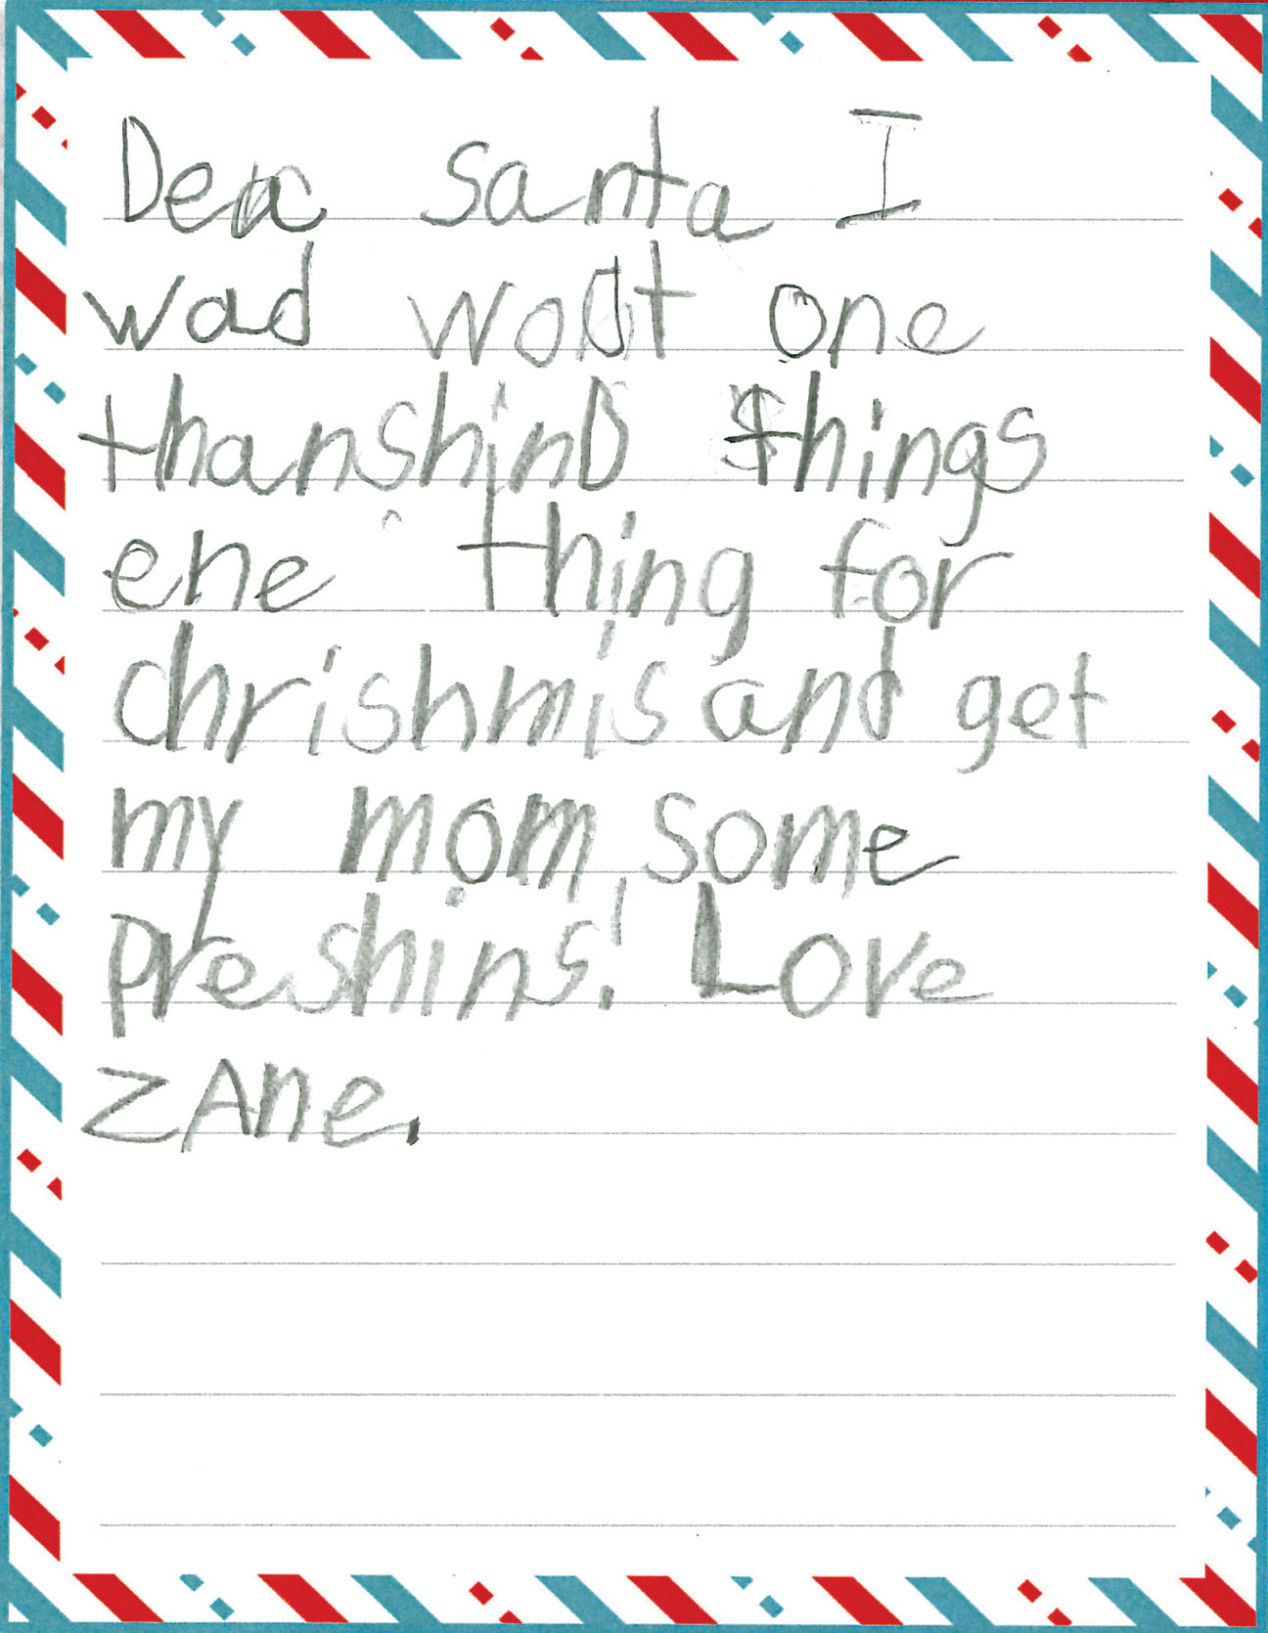 Dea Santa I
wad wodt one
thanshinD things
ene thing for
chrishmis and get
my mom some
preshins! Love
ZAne.